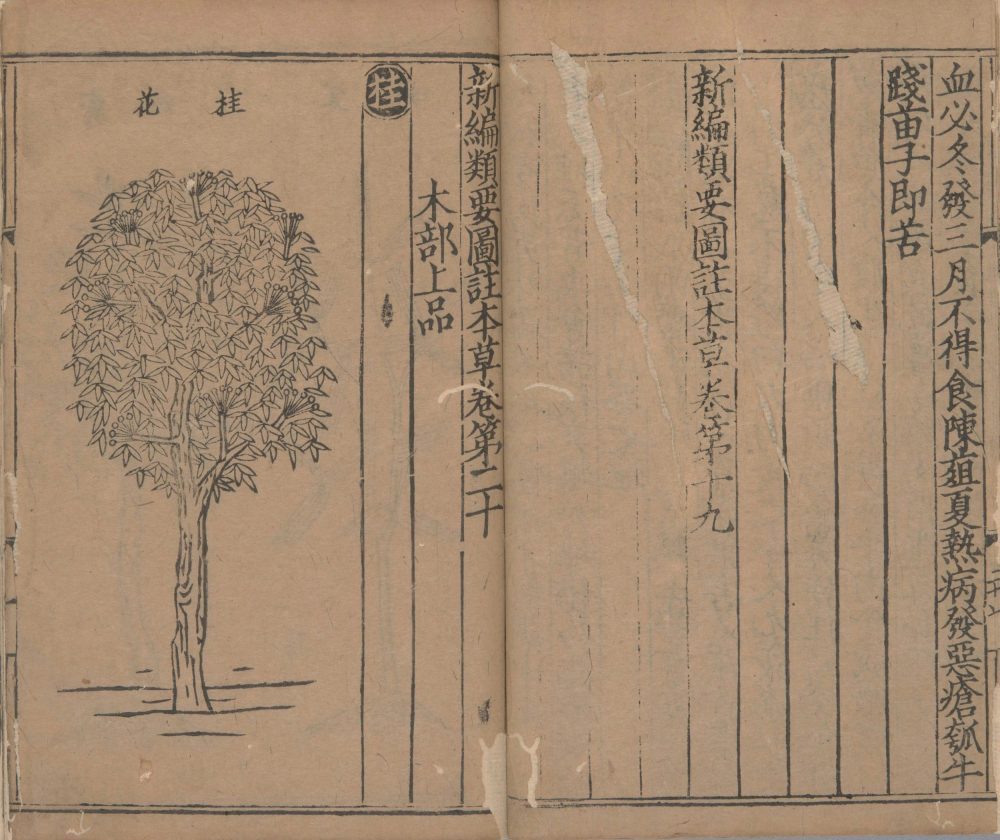 血必冬發三月不得食陳葅夏熱病發惡瘡瓠牛
踐苗子即苦
新編類要圖註本草卷第十九
新編類要圖註本草卷第二十
木部上品
桂
桂花